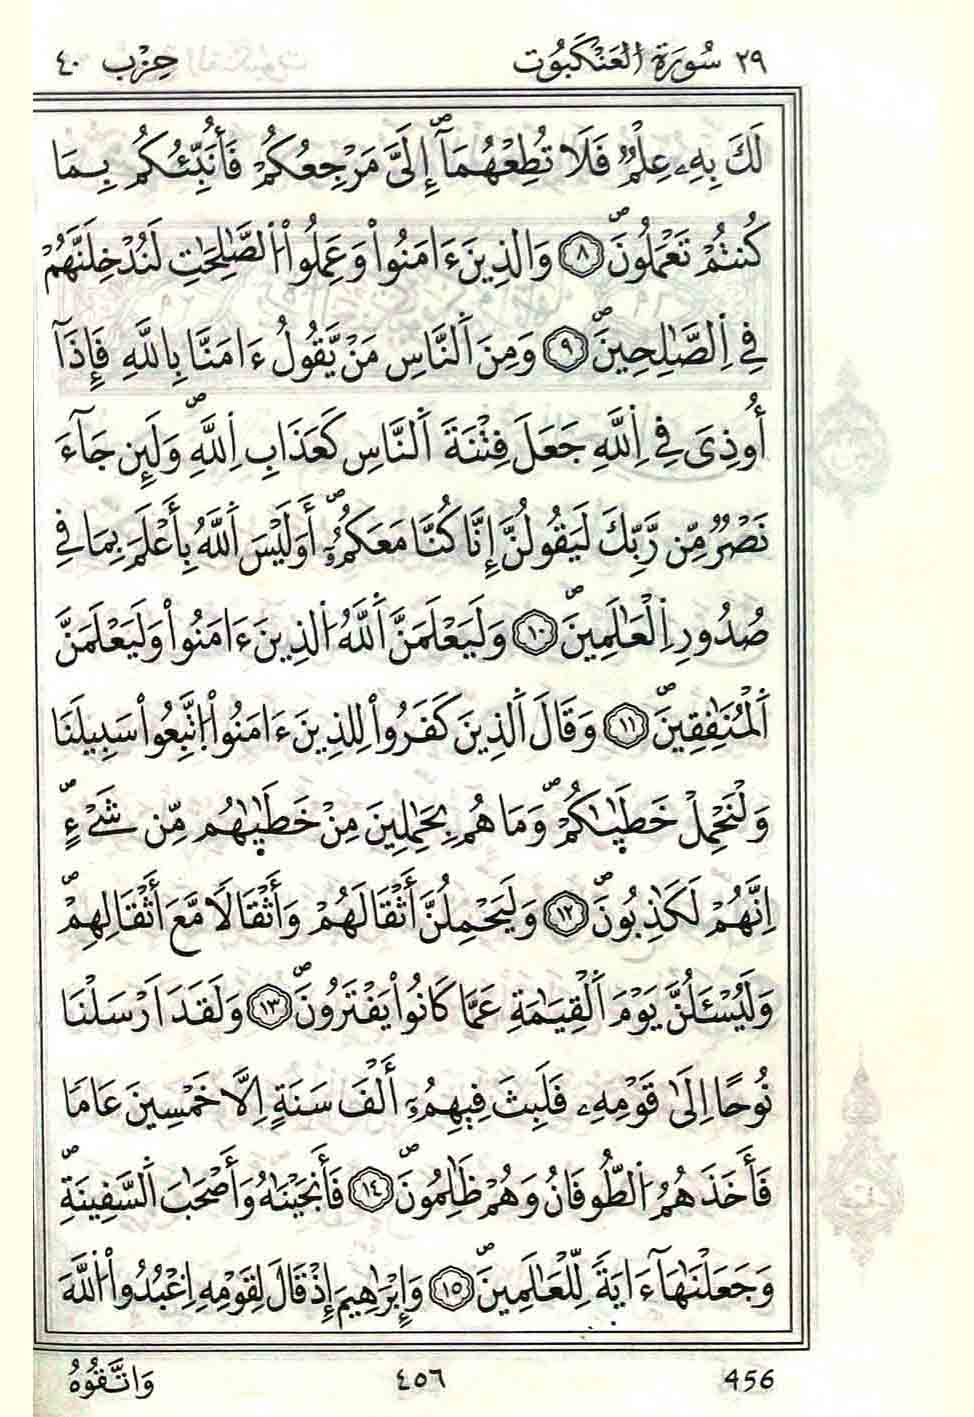 ٢٩ سُورَة العَنكَبُوت حِزْب ٤٠
لَكَ بِهِۦ عِلْمٌ فَلَا تُطِعْهُمَآ إِلَىَّ مَرْجِعُكُمْ فَأُنَبِّئُكُم بِمَا
كُنتُمْ تَعْمَلُونَ ٨ وَالذِينَ ءَامَنُواْ وَعَمِلُواْ الصَّٰلِحَٰتِ لَنُدْخِلَنَّهُمْ
فِے الصَّٰلِحِينَ ٩ وَمِنَ اَلنَّاسِ مَنْ يَّقُولُ ءَامَنَّا بِاللَّهِ فَإِذَآ
أُوذِىَ فِے اِللَّهِ جَعَلَ فِتْنَةَ اَلنَّاسِ كَعَذَابِ اِللَّهِ وَلَئِن جَآءَ
نَصْرٌ مِّن رَّبِّكَ لَيَقُولُنَّ إِنَّا كُنَّا مَعَكُمُۥٓ أَوَلَيْسَ اَللَّهُ بِأَعْلَمَ بِمَا فِے
صُدُورِ اِلْعَٰلَمِينَ ١٠ وَلَيَعْلَمَنَّ اَللَّهُ الذِينَ ءَامَنُواْ وَلَيَعْلَمَنَّ
اَلْمُنَٰفِقِينَ ١١ وَقَالَ اَلذِينَ كَفَرُواْ لِلذِينَ ءَامَنُواْ اتَّبِعُواْ سَبِيلَنَا
وَلْنَحْمِلْ خَطَٰيَٰكُمْ وَمَا هُم بِحَٰمِلِينَ مِنْ خَطَٰيَٰهُم مِّن شَےْءٍ
اِنَّهُمْ لَكَٰذِبُونَ ١٢ وَلَيَحْمِلُنَّ أَثْقَالَهُمْ وَأَثْقَالًا مَّعَ أَثْقَالِهِمْ
وَلَيُسْـَٔلُنَّ يَوْمَ اَلْقِيَٰمَةِ عَمَّا كَانُواْ يَفْتَرُونَ ١٣ وَلَقَدَ اَرْسَلْنَا
نُوحًا اِلَىٰ قَوْمِهِۦ فَلَبِثَ فِيهِمُۥٓ أَلْفَ سَنَةٍ اِلَّا خَمْسِينَ عَامًا
فَأَخَذَهُمُ اُلطُّوفَانُ وَهُمْ ظَٰلِمُونَ ١٤ فَأَنجَيْنَٰهُ وَأَصْحَٰبَ اَلسَّفِينَةِ
وَجَعَلْنَٰهَآ ءَايَةً لِّلْعَٰلَمِينَ ١٥ وَإِبْرَٰهِيمَ إِذْ قَالَ لِقَوْمِهِ اِعْبُدُواْ اللَّهَ
456 ٤٥٦ وَاتَّقُوهُ